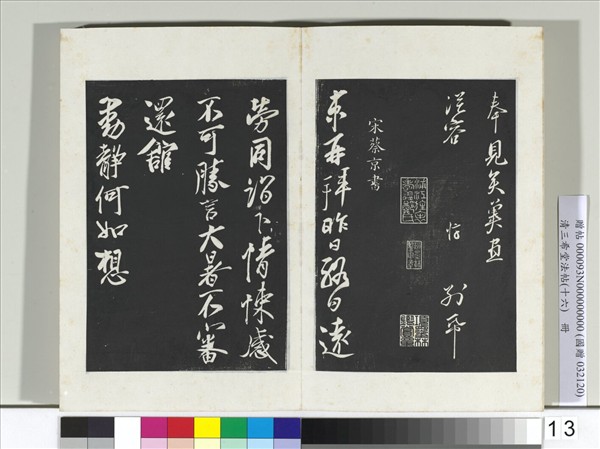 奉見矣冀画
從容
宋蔡京書
京再拜昨日路日遠
勞同詣下情悚感
不可勝言大暑不審
還館
動靜何如想
贈帖 000093N000000000 (國贈 032120)
清三希堂法帖(十六) 冊
13